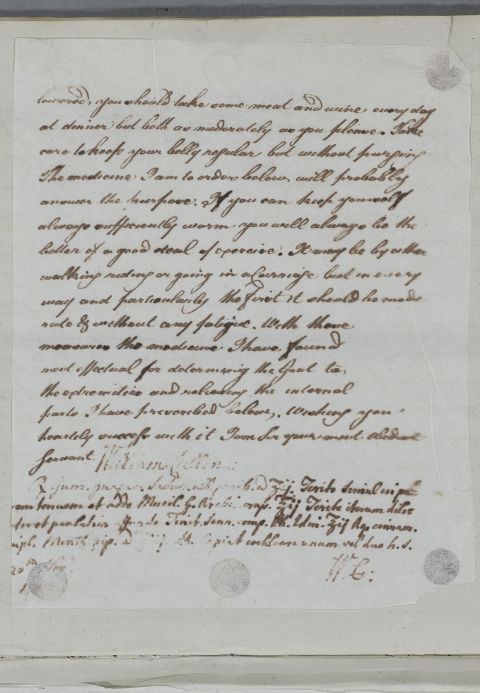 lowered, you should take some meat and wine every day
at dinner but both as moderately as you please. Take
care to keep your belly regular but without purging
The medicine I am to order below will probably
answer the purpose. If you can keep yourself
always sufficiently warm you will always be the
better of a good deal of exercise. It may be by either
walking riding or going in a Carriage but in every
way and particularly the first it should be mode
rate & without any fatigue. With these
measures the medicine I have found
most effectual for determining the Gout to
the extremities and relieving the internal
parts I have prescribed below, Wishing you
heartily success with it I am Sir your most obedient
Servant William Cullen:
Rx Gum. ʒij. Terito simul in pul
rem tenuem et adde Mucil. G. Arabic. ʒij Terito iterum
Tinct. Senn. comp. ʒij Aq. cinnam.
Menth. pip. cochleare unum vel duo h.s.
20
W. C: